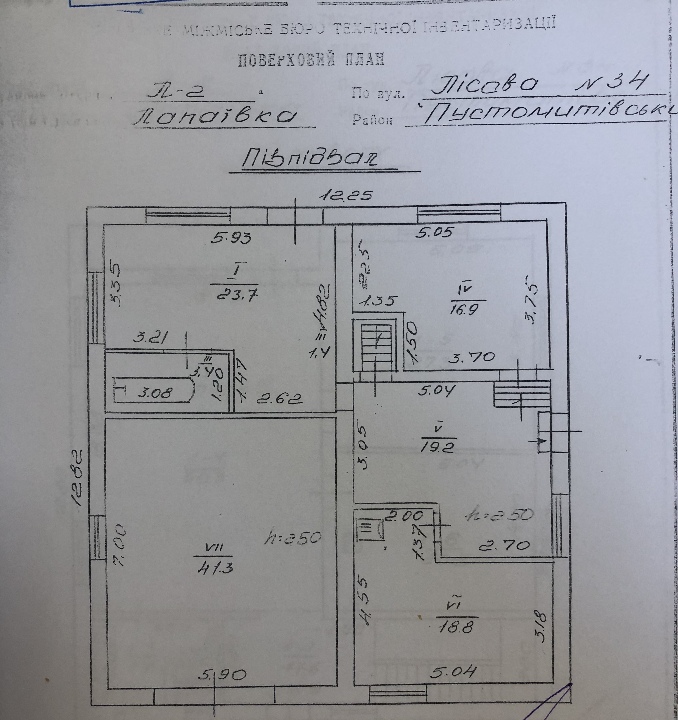 МІЖМІСЬКЕ БЮРО ТЕХНІЧНОЇ ІНВЕНТАРИЗАЦІЇ
ПОВЕРХОВИЙ ПЛАН
Л-2 По вул. Лісова N 34
Лапаївка Район Пустомитівськи
Півпідвал
12.25
5.93 5.05
3.35 I 23.7 4.82 2.25 IV 16.9 3.75
1.35
3.21 III 1.4 1.50 3.70
3.08 1.20 1.47 2.62 5.04
12.82 3.05 V 19.2
2.00 h=2.50
7.00 VII 41.3 h=2.50 1.37 2.70
4.55 VI 18.8 3.18
5.90 5.04